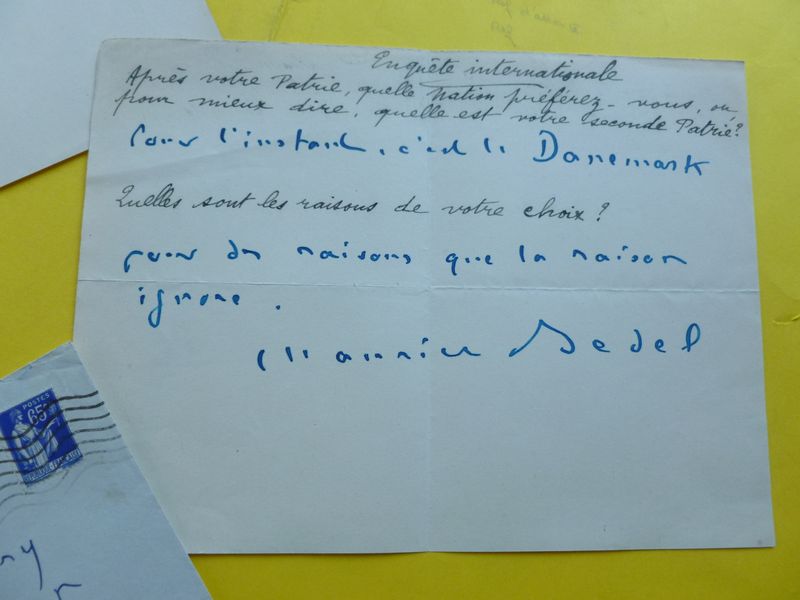 Enquête internationale
Après votre Patrie, quelle Nation préférez-vous, ou
pour mieux dire, quelle est votre seconde Patrie?
Pour l'instant, c'est le Danemark
Quelles sont les raisons de votre choix?
pour des raisons que la raison
ignore.
Maurice Bedel
POSTES
65c
REPUBLIQUE FRANÇAISE